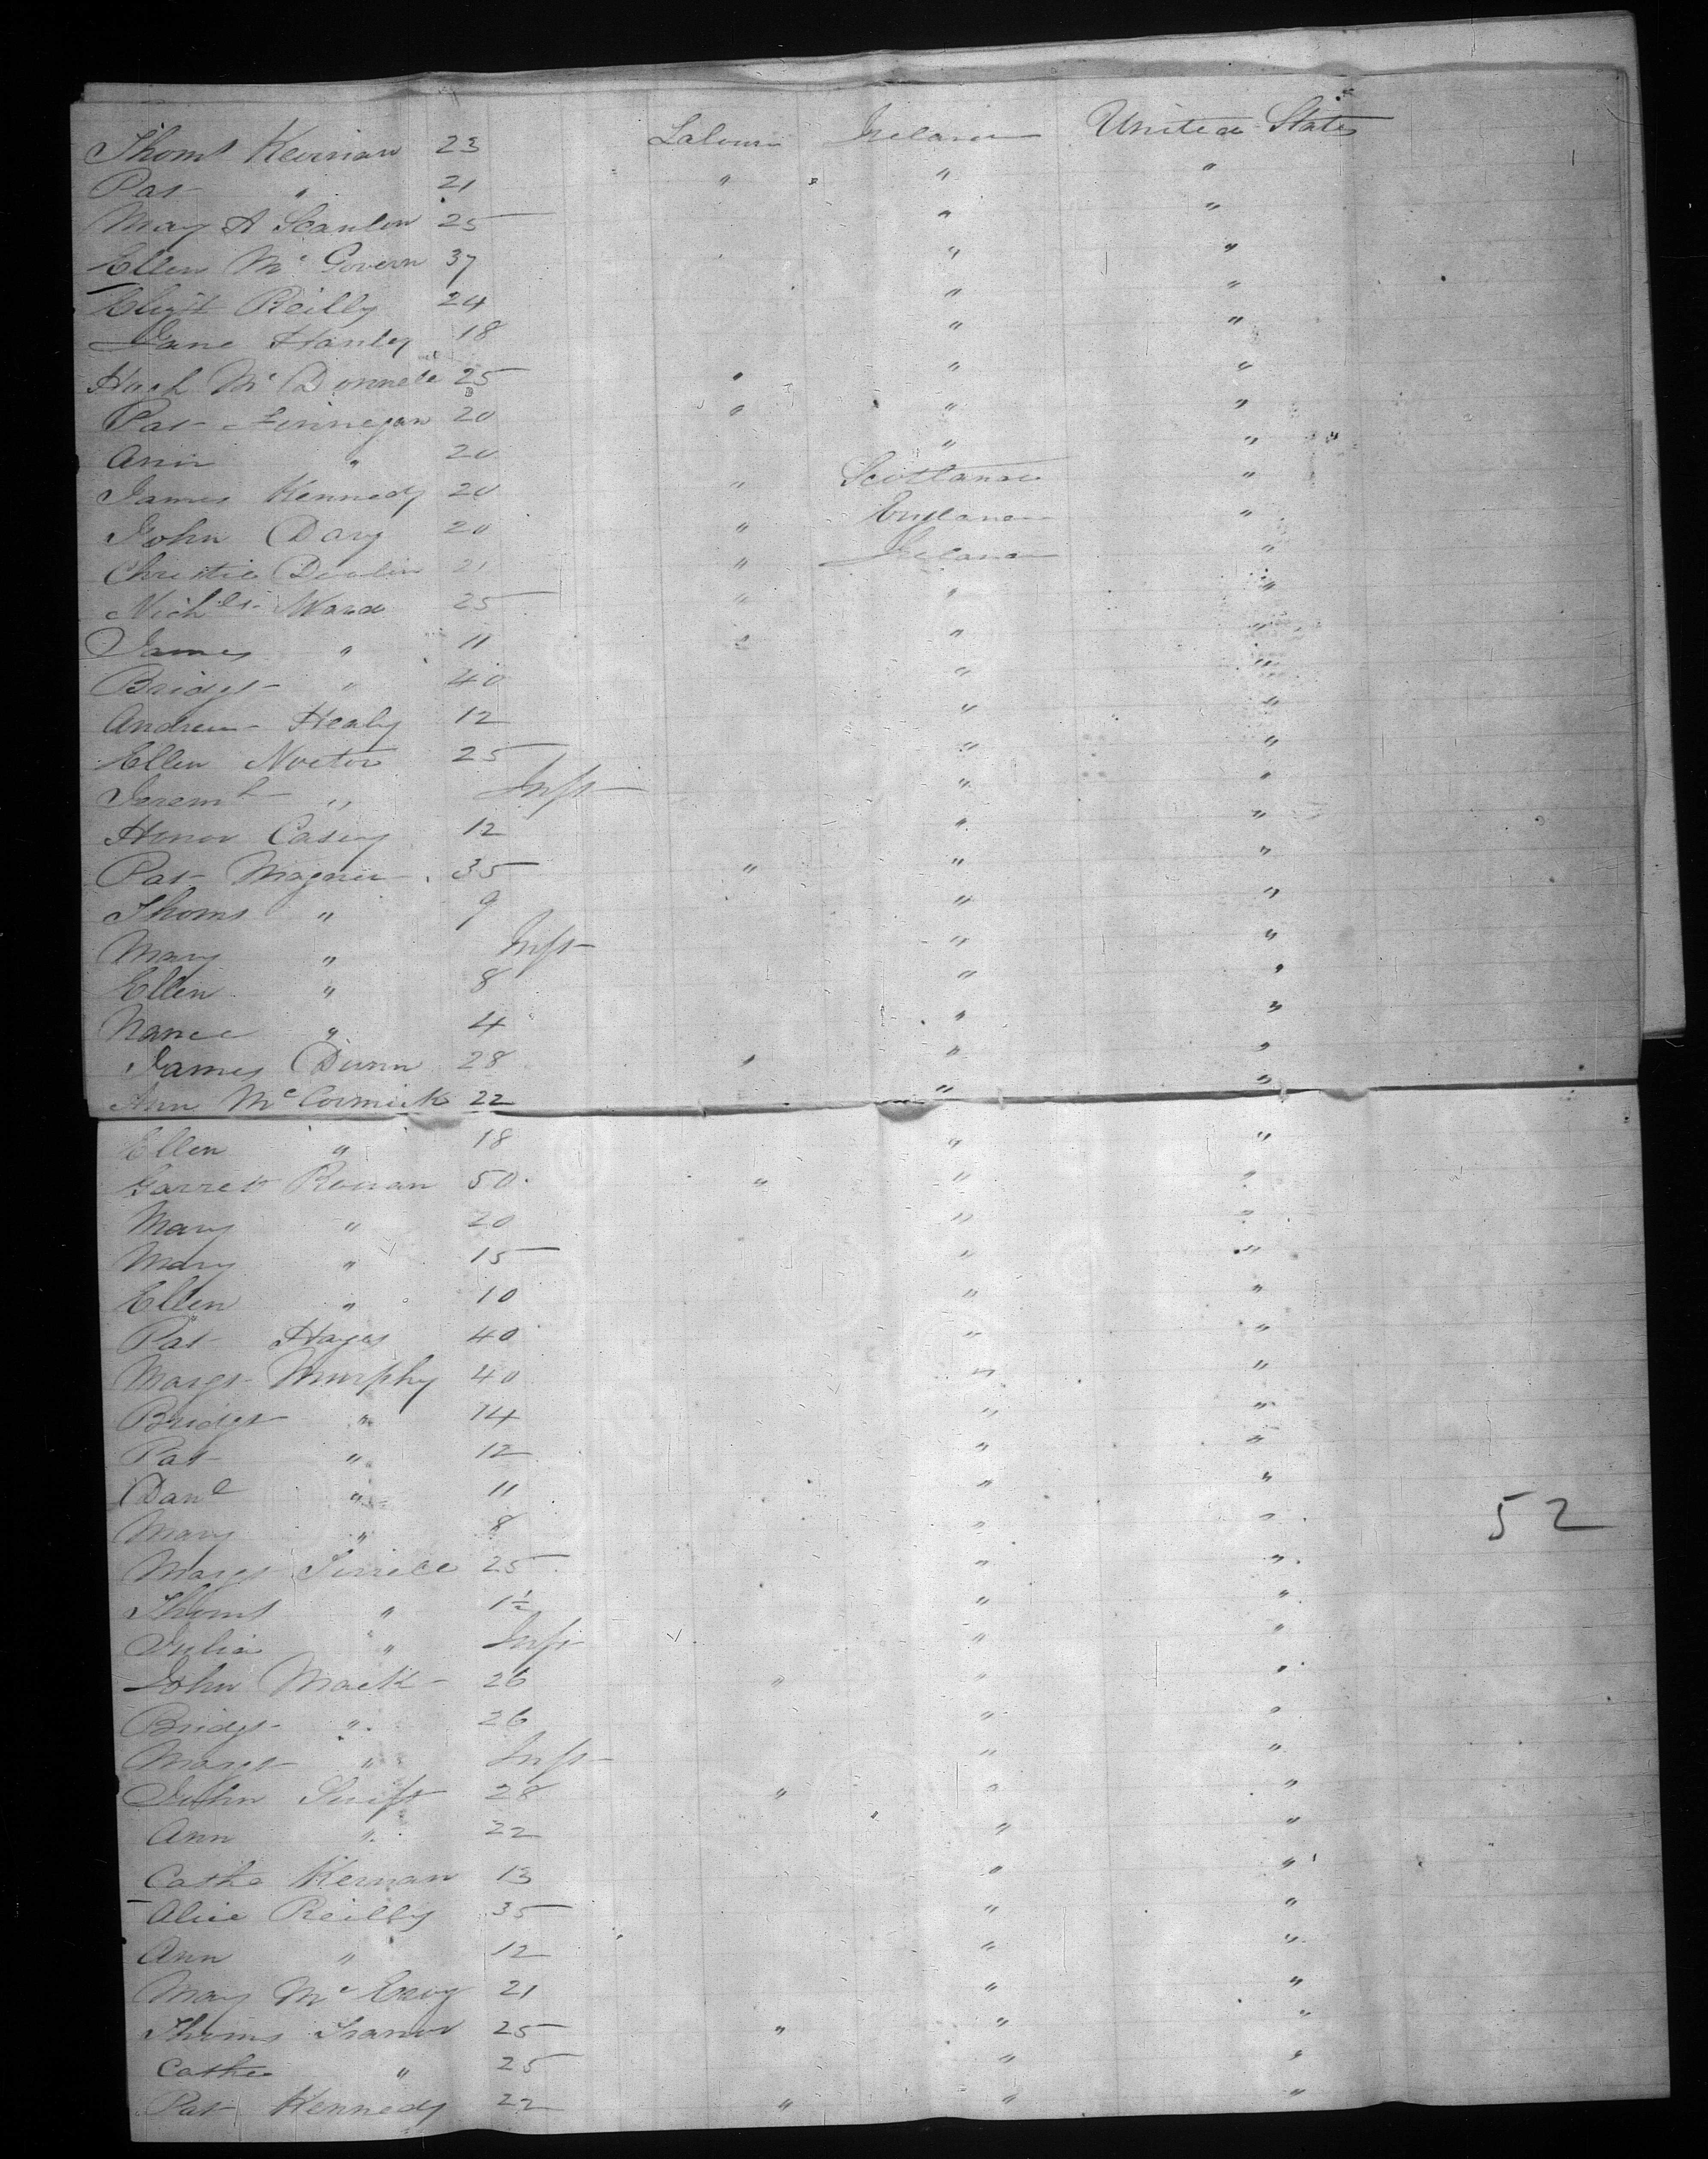 Thoms Keirnan 23 Labourer Ireland United States
Pat " 21 " " "
Mary A Scanlon 25 " "
Ellen Mc Govern 37 " "
Elizth Reilly 24 " "
Jane Hanley 18 " "
Hugh Mc Donnell 25 " " "
Pat Finnegan 20 " " "
Ann " 20 " "
James Kennedy 20 " Scotland "
John Day 20 " England "
Christie Devlin 21 " Ireland "
Nichls Ward 25 " " "
James " 11 " " "
Bridgt " 40 " "
Andrew Healy 12 " "
Ellen Nocton 25 " "
Jeremh " Inft " "
Honor Casey 12 " "
Pat Magner 35 " " "
Thoms " 9 " "
Mary " Inft " "
Ellen " 8 " "
Nance " 4 " "
James Dunn 28 " " "
Ann Mc Cormick 22 " "
Ellen " 18 " "
Garrett Ronan 50 " " "
Mary " 20 " "
Mary " 15 " "
Ellen " 10 " "
Pat Hayes 40 " "
Margt Murphy 40 " "
Bridgt " 14 " "
Pat " 12 " "
Danl " 11 " "
52
Mary " 8 " "
Margt 25 " "
Thoms " 1½ " "
Julia " Inft " "
John Mack 26 " " "
Bridgt " 26 " "
Margt " Inft " "
John Swift 28 " " "
Ann " 22 " "
Cathe Kernan 13 " "
Alice Reilly 35 " "
Ann " 12 " "
Mary Mc Evoy 21 " "
Thoms Tranor 25 " " "
Cathe " 25 " "
Pat Kennedy 22 " " "